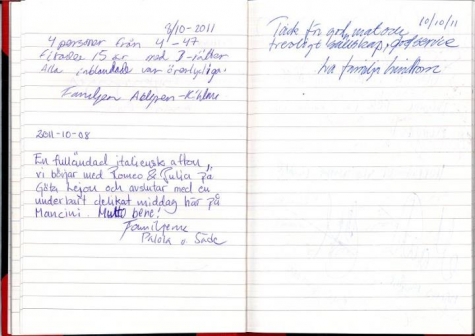 2/10-2011
4 personer från 4 - 47
Firades 15 år med 3-rätter
Alla inblandade var överlyckliga.
Familjen
2011-10-08
En fulländad italiensk afton,
vi börjar med Romeo & Julia på
Göta Lejon och avslutar med en
underbart delikat middag här på
Mancini. Mutto bene!
Familjerna
Palola o. Säde
10/10/11
Tack för god mat och
trevligt sällskap, god service
två familjer